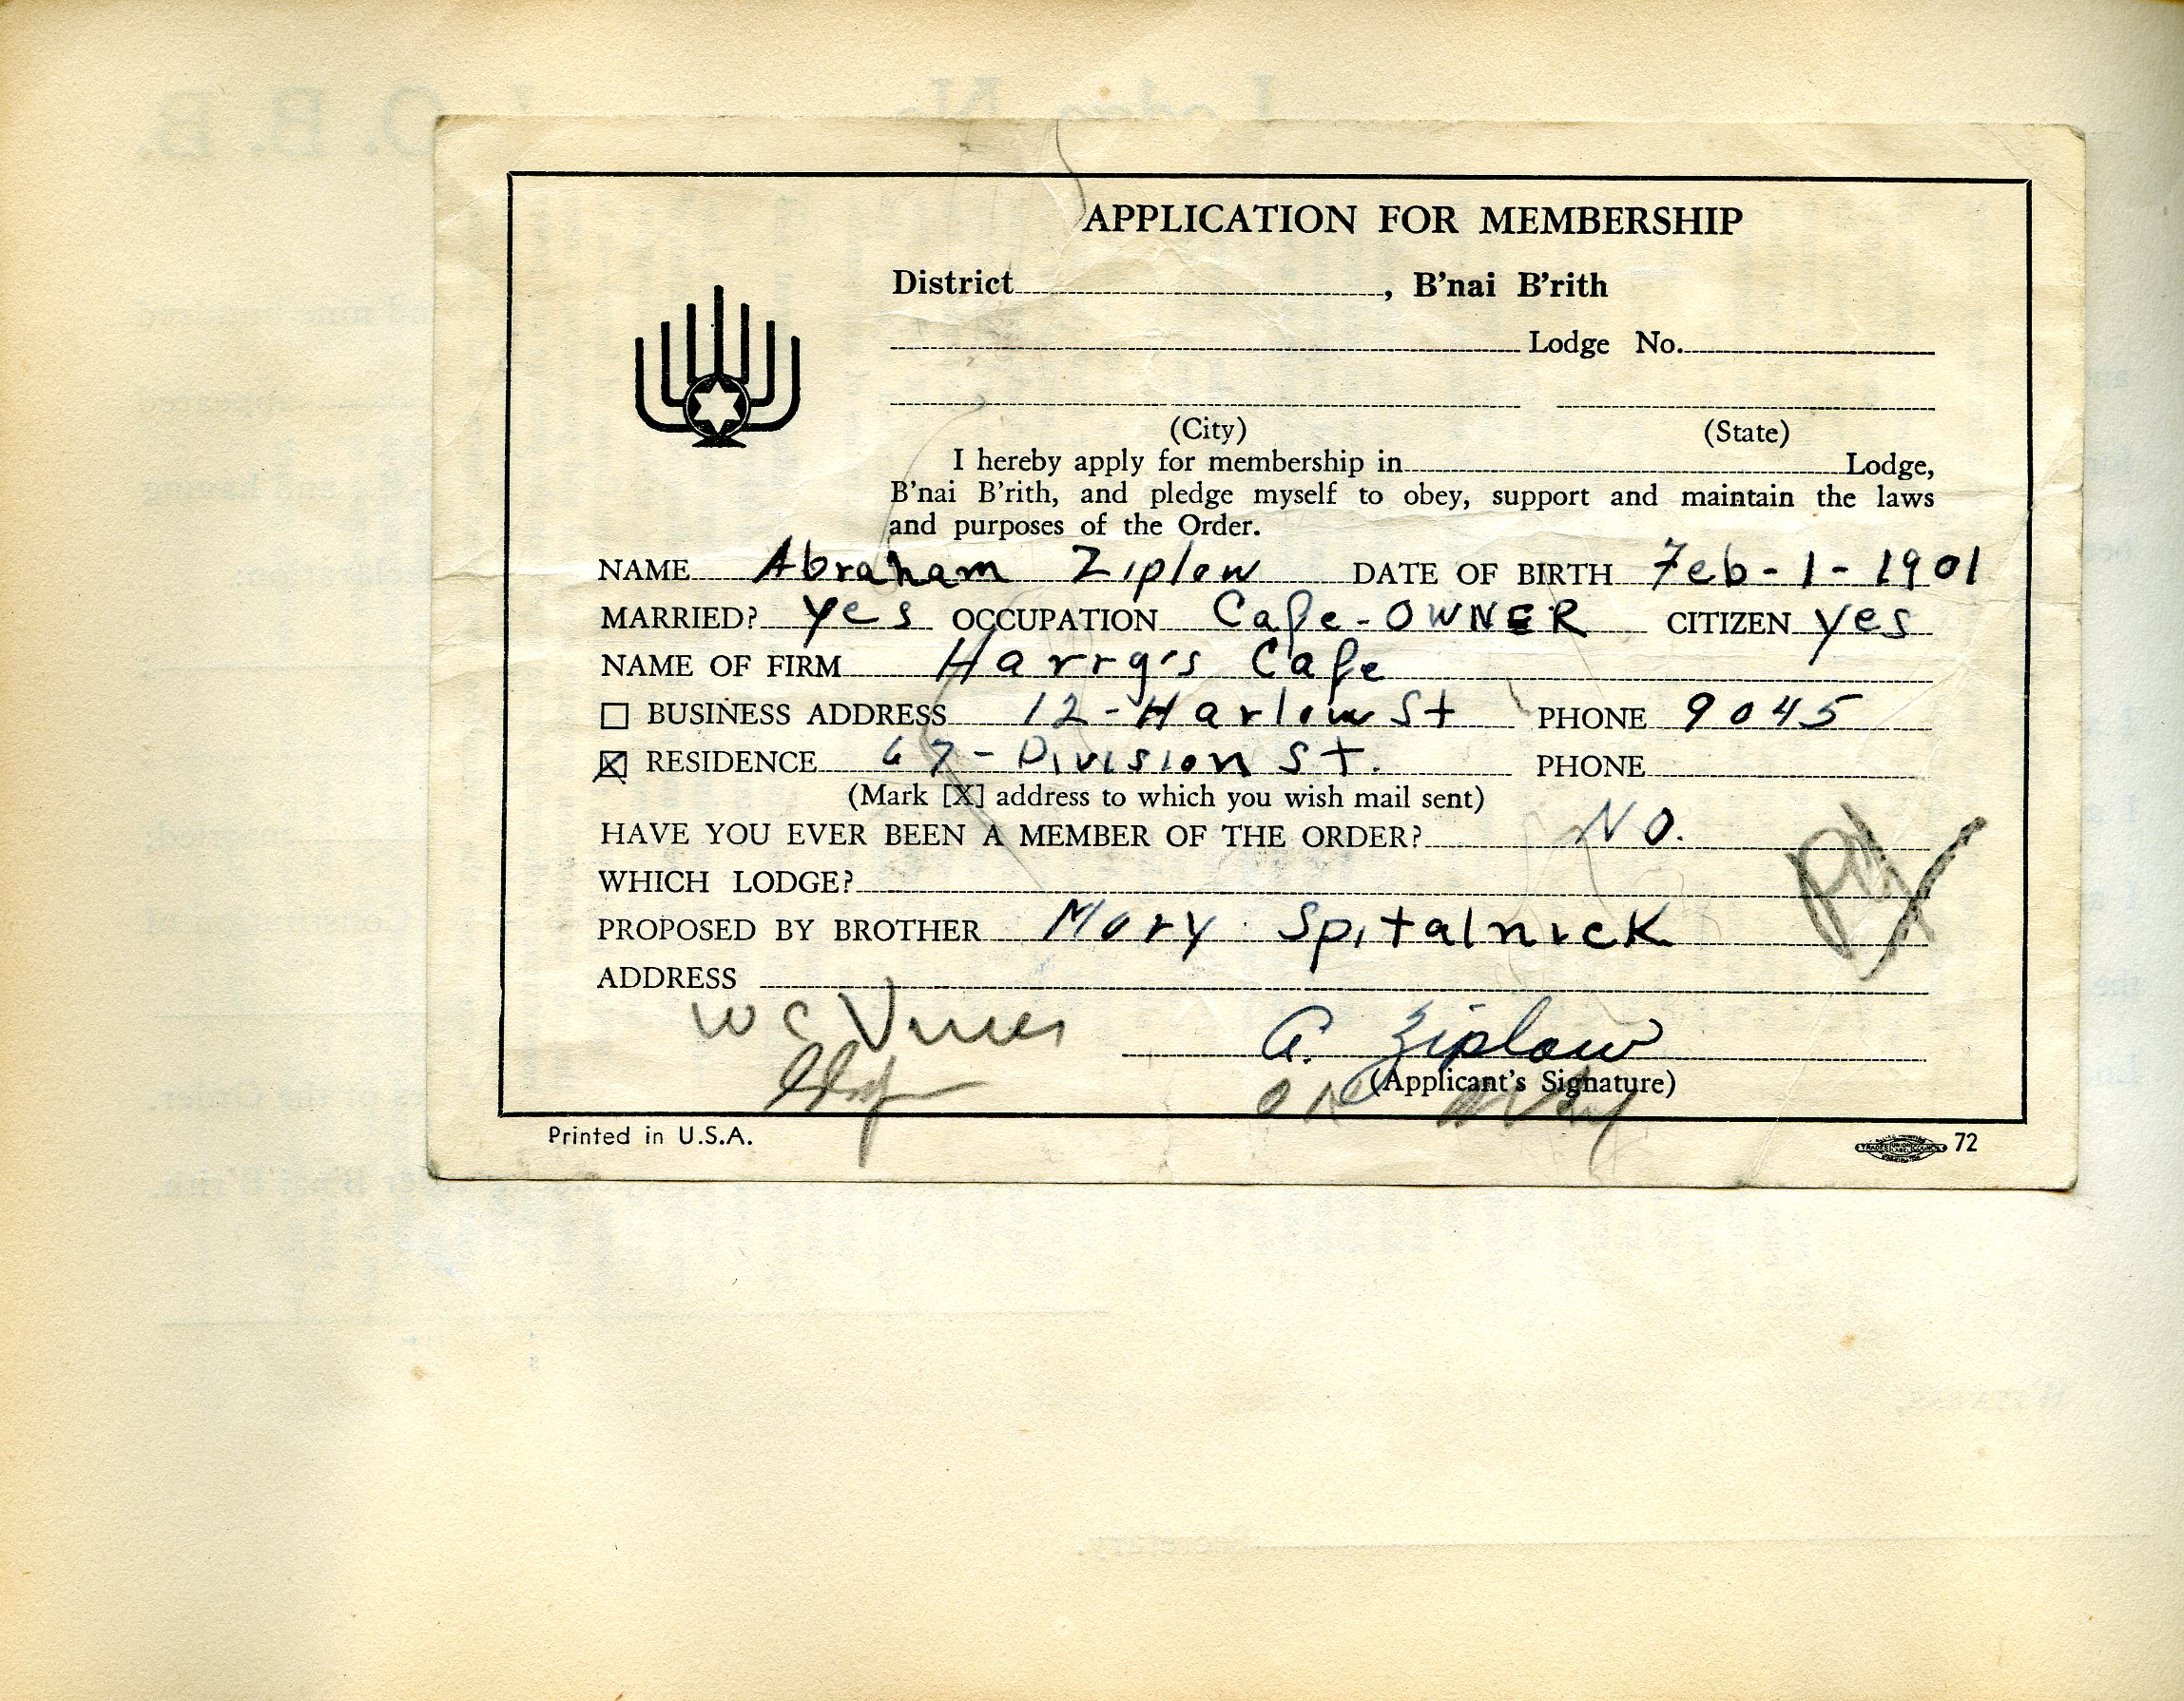 APPLICATION FOR MEMBERSHIP
District, B'nai B'rith
Lodge No.
(City) (State)
I hereby apply for membership in Lodge,
B'nai B'rith, and pledge myself to obey, support and maintain the laws
and purposes of the Order.
NAME Abraham Ziplow DATE OF BIRTH Feb-1-1901
MARRIED? yes OCCUPATION Cafe-OWNER CITIZEN yes
NAME OF FIRM Harry's Cafe
BUSINESS ADDRESS 12-Harlow St PHONE 9045
RESIDENCE 67-Division St. PHONE
(Mark [X] address to which you wish mail sent)
HAVE YOU EVER BEEN A MEMBER OF THE ORDER? NO.
WHICH LODGE?
PROPOSED BY BROTHER Mory Spitalnick
ADDRESS
A. Ziplow
(Applicant's Signature)
Printed in U.S.A.
72